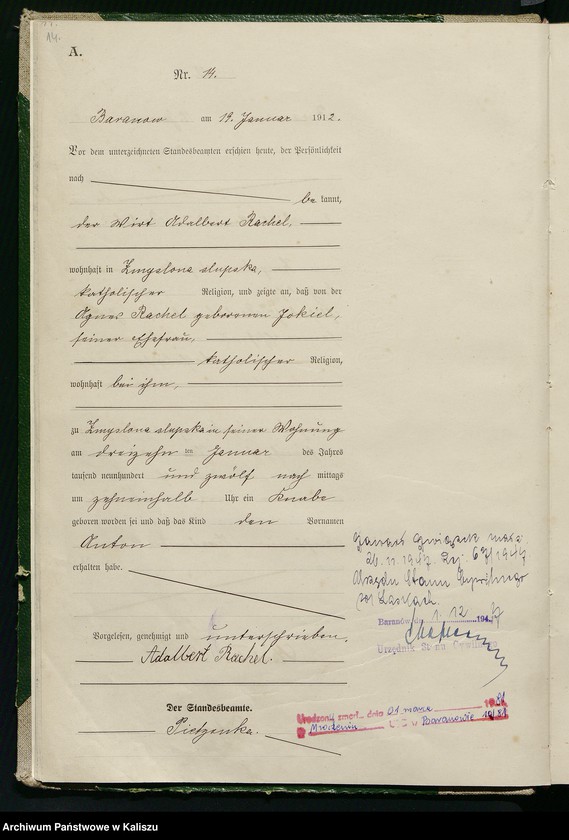 14.
A.
Nr. 14.
Baranow am 19. Januar 1912.
Vor dem unterzeichneten Standesbeamten erschien heute, der Persönlichkeit
nach
be kannt,
der Wirt Adalbert Rachel,
wohnhaft in Zmyslona slupska,
katholischer Religion, und zeigte an, daß von der
Agnes Rachel geborenen Jokiel,
seiner Ehefrau,
katholischer Religion,
wohnhaft bei ihm,
zu Zmyslona slupska in seiner Wohnung
am dreizehn ten Januar des Jahres
tausend neunhundert und zwölf nach mittags
um zehneinhalb Uhr ein Knabe
geboren worden sei und daß das Kind den Vornamen
Anton
erhalten habe.
Vorgelesen, genehmigt und unterschrieben.
Adalbert Rachel.
Der Standesbeamte.
Pietzonka.
Zawarł związek małż.
26.11.1947. Rej. 67/1947
Urzędu Stanu Cywilnego
w Łaskach.
Baranów, dn. 1. 12. 1947
Urzędnik Stanu Cywilnego
Urodzony zmarł dnia 01 marca 1981
w Mroczeniu USC w Baranowie 10/81
Archiwum Państwowe w Kaliszu